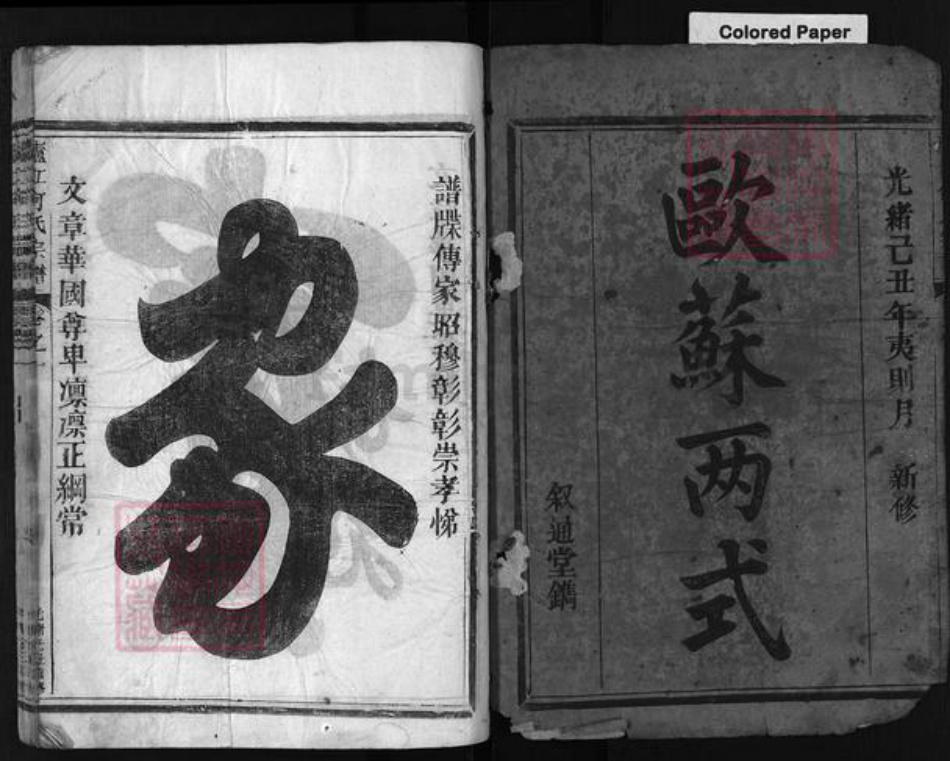 Colored Paper
光緒己丑年夷則月 新修
歐蘇两式
叙通堂鐫
譜牒傳家昭穆彰彰崇孝悌
文章華國尊卑凛凛正綱常
廬江何氏宗譜